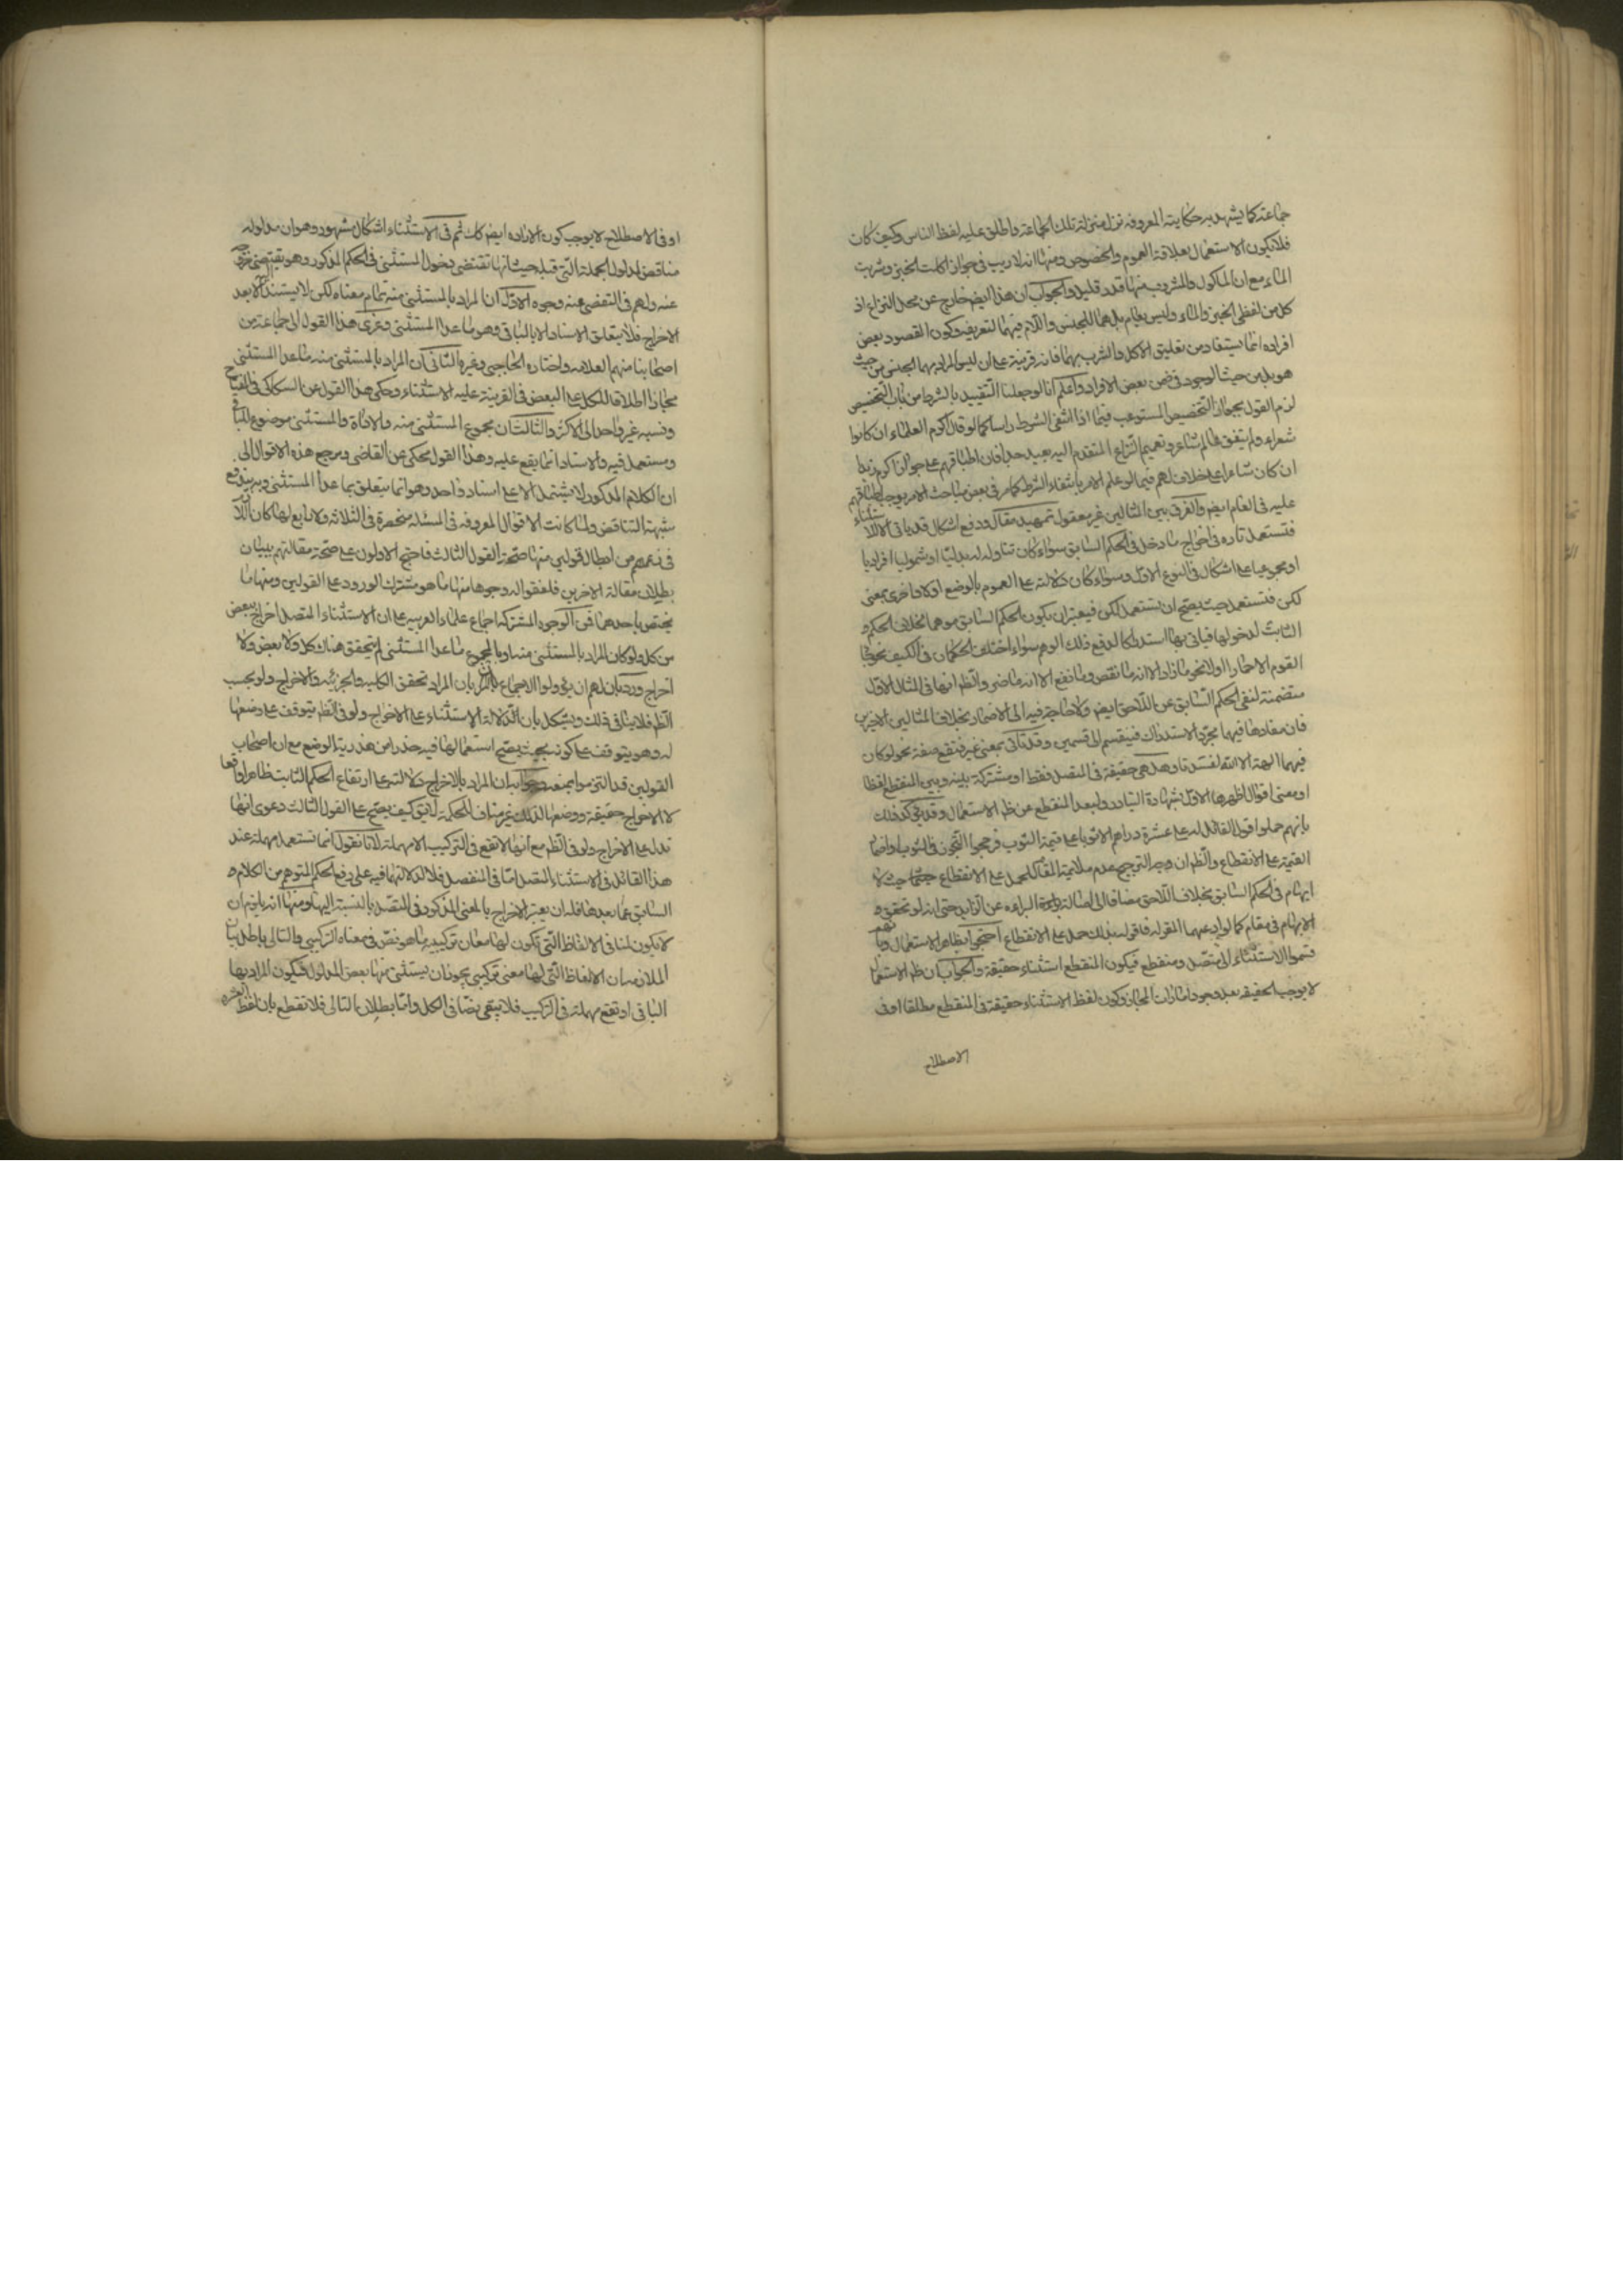 جماعة كما يشهد به حكايته المعروفه نزل منزلة تلك الجماعة واطلق عليه لفظ الناس وكيف كان
فلا يكون الاستعمال بعلاقة العموم والخصوص ومنها انه لا ريب فى جواز اكلت الخبز وشربت
الماء مع ان الماكول والمشروب منها قدر قليل والجواب ان هذا ايض خارج عن محل النزاع اذ
كل من لفظى الخبز والماء وليس بعام بل هما للجنس واللام فيهما لتعريفه وكون المقصود بعض
افراده انما يستفاد من تعليق الاكل والشرب بهما فانه قرينة على ان ليس المراد بهما الجنس من حيث
هو بل من حيث الوجود فى ضمن بعض الافراد واعلم انا لو جعلنا التقييد بالشرط من باب التخصيص
لزم القول بجواز التخصيص المستوعب فيما اذا انتفى الشرط راسا كما لو قال اكرم العلماء ان كانوا
شعراء ولم يتفق عالم شاعر وتعميم النزاع المتقدم اليه بعيد جدا فان اطباقهم على جواز اكرم زيدا
ان كان شاعرا على خلاف لهم فيما لو علم الامر بانتفاء الشرط كما مر فى بعض مباحث الامر يوجب اطباقهم
عليه فى العام ايض والفرق بين المثالين غير معقول تمهيد مقال ودفع اشكال قد ياتى الا للاستثناء
فتستعمل تاره فى اخراج ما دخل فى الحكم السابق سواء كان تناوله له بدليا او شموليا افراديا
او مجموعيا على اشكال فى النوع الاول وسواء كان دلالته على العموم بالوضع اولا واخرى بمعنى
لكن فتستعمل حيث يصح ان يستعمل لكن فيعتبر ان يكون الحكم السابق موهما لخلاف الحكم و
الثابت لدخولها فياتى بها استدراكا لدفع ذلك الوهم سواء اختلف الحكمان فى الكيف نحو جاء
القوم الا حمارا اولا نحو ما زاد الا انه ما نقص وما نفع الا انه ما ضر والظ انها فى المثال الاول
متضمنة لنفى الحكم السابق عن اللاحق ايض ولا حاجة فيه الى الاضمار بخلاف المثالين الاخيرين
فان مفادها فيهما مجرد الاستدراك فينقسم الى قسمين وقد تاتى بمعنى غير فتقع صفة نحو لو كان
فيهما الهة الا الله لفسدتا وهل هى حقيقة فى المتصل فقط او مشتركة بينه وبين المنقطع لفظا
او معنى اقوال اظهرها الاول بشهادة التبادر ولبعد المنقطع عن ظ الاستعمال وقد يؤكد ذلك
بانهم حملوا قول القائل له على عشرة دراهم الا ثوبا على قيمة الثوب فرجحوا التجوز فى الثوب او اضمار
القيمة على الانقطاع والظ ان وجه الترجيح عدم ملايمة المقام للحمل على الانقطاع حيث لا
ايهام فى الحكم السابق بخلاف اللاحق مضافا الى اصالة البراءه عن الزايد حتى انه لو تحقق و
الايهام فى مقام كما لو ادعيهما المقر له فاقر له بذلك حمل على الانقطاع احتجوا بظاهر الاستعمال وبانهم
قسموا الاستثناء الى متصل ومنقطع فيكون المنقطع استثناء حقيقة والجواب ان ظ الاستعمال
لا يوجب الحقيقه بعد وجود امارات المجاز وكون لفظ الاستثناء حقيقة فى المنقطع مطلقا او فى
الاصطلاح
او فى الاصطلاح لا يوجب كون الاراده ايض كك ثم فى الاستثناء اشكال مشهور وهو ان مدلوله
مناقض لمدلول الجملة التى قبله حيث انها تقتضى دخول المستثنى فى الحكم المذكور وهو يقتضى خروجه
عنه ولهم فى التفصى عنه وجوه الاول ان المراد بالمستثنى منه تمام معناه لكن لا يستند اليه الا بعد
الاخراج فلا يتعلق الاسناد الا بالباقى وهو ما عدا المستثنى وعزى هذا القول الى جماعة من
اصحابنا منهم العلامه واختاره الحاجبى وغيره الثانى ان المراد بالمستثنى منه ما عدا المستثنى
مجازا اطلاقا للكل على البعض فالقرينة عليه الاستثناء وحكى هذا القول عن السكاكى فى المفتاح
ونسبه غير واحد الى الاكثر والثالث ان مجموع المستثنى منه والاداة والمستثنى موضوع للباقى
ومستعمل فيه والاسناد انما يقع عليه وهذا القول محكى عن القاضى ومرجع هذه الاقوال الى
ان الكلام المذكور لا يشتمل الا على اسناد واحد وهو انما يتعلق بما عدا المستثنى وبه يندفع
شبهة التناقض ولما كانت الاقوال المعروفه فى المسئلة منحصرة فى الثلاثه ولا رابع لها كان اللازم
فى زعمهم من ابطال قولين منها صحة القول الثالث فاحتج الاولون على صحة مقالتهم ببيان
بطلان مقالة الاخرين فلفقوا له وجوها منها ما هو مشترك الورود على القولين ومنها ما
يختص باحدهما فمن الوجوه المشتركه اجماع علماء العربيه على ان الاستثناء المتصل اخراج بعض
من كل ولو كان المراد بالمستثنى منه او بالمجموع ما عدا المستثنى لم يتحقق هناك كل ولا بعض ولا
اخراج ورد بان لهم ان يؤولوا الاجماع بان المراد تحقق الكليه والجزئيه والاخراج ولو بحسب
الظ فلا ينافى ذلك ويشكل بان الدلالة الاستثناء على الاخراج ولو فى الظ يتوقف على وضعها
له وهو يتوقف على كونه بحيث يصح استعمالها فيه حذرا من هذرية الوضع مع ان اصحاب
القولين قد التزموا بمنعه وجوابه ان المراد بالاخراج دلالته على ارتفاع الحكم الثابت ظاهرا واقعا
لا الاخراج حقيقة ووضعها لذلك غير مناف للحكمة لا يق كيف يصح على القول الثالث دعوى انها
تدل على الاخراج ولو فى الظ مع انها لا تقع فى التركيب الا مهملة لانا نقول انما تستعمل مهملة عند
هذا القائل فى الاستثناء المتصل اما فى المنفصل فلا لدلالتها فيه على رفع الحكم المتوهم من الكلام و
السابق عما بعدها فله ان يعتبر الاخراج بالمعنى المذكور فى المتصل بالنسبة اليها ومنها انه يلزم ان
لا يكون لنا فى الالفاظ التى تكون لها معان تركيبيه ما هو نص فى معناه التركيبى والتالى باطل بيان
الملازمه ان الالفاظ التى لها معنى تركيبى يجوز ان يستثنى منها بعض المدلول فيكون المراد بها
الباقى او تقع مهملة فى التركيب فلا يبقى نصا فى الكل واما بطلان التالى فلانقطع بان لفظ العشره